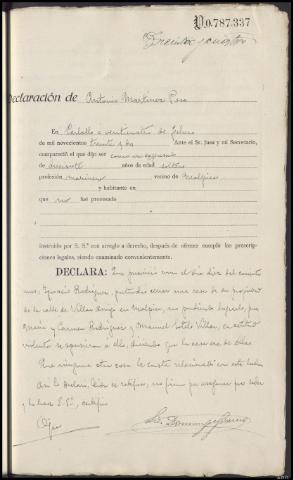 P.0.787.337
Declaración de Antonio Martínez Pose
En Carballo a veinticuatro de Febrero
de mil novecientos treinta y dos Ante el Sr. Juez y mi Secretario,
compareció el que dijo ser como se expresará
de diecisiete años de edad soltero
profesión marinero vecino de Malpica
y habitante en
que no fué procesado
instruído por S. S.ª con arreglo a derecho, después de ofrecer cumplir las prescrip-
ciones legales, siendo examinado convenientemente.
DECLARA: Que presenció como el día diez del corriente
mes, Ignacio Rodríguez, pretendió cerrar una casa de su propiedad
de la calle de Villar Amigo en Malpica, no pudiendo hacerlo, por
María y Carmen Rodríguez y Manuel Sotelo Villar, en actitud
violenta se opusieron a ello, diciendo que la casa era de ellas
Que ninguna otra cosa le consta relacionada con este hecho
Así lo declara, leída se ratifica, no firma por asegurar no saber
y lo hace S. Sª, certifico